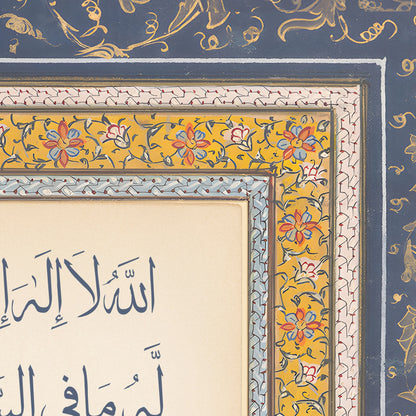 اللَّهُ لَا إِلَٰهَ
لَّهُ مَا فِي